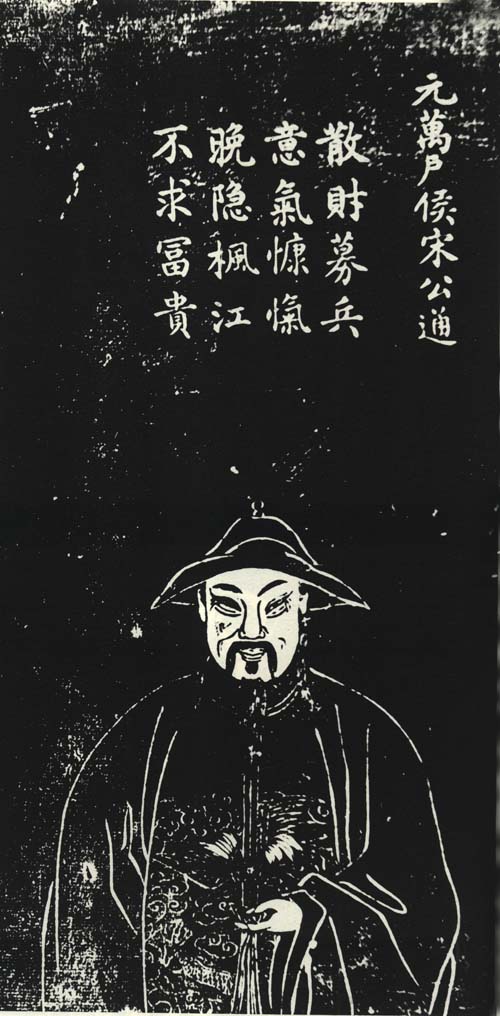 元萬戶侯宋公通
散財募兵
意氣慷慨
晚隐楓江
不求冨貴